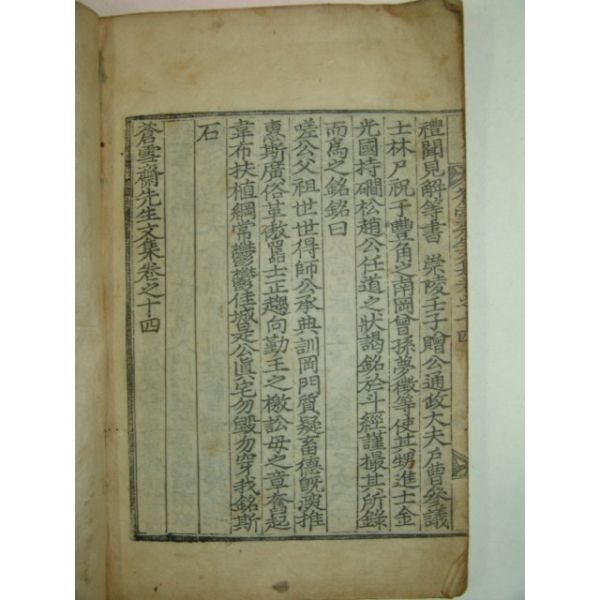 禮聞見解等書 崇陵壬子贈公通政大夫戶曹參議
士林尸祝于豐角之南岡曾孫夢徵等使其甥進士金
光國持磵松趙公任道之狀謁銘於斗經謹撮其所錄
而爲之銘銘曰
嗟公父祖世世得師公承典訓岡門質疑畜德旣演推
惠斯廣俗革敖嚚士正趨向勤王之檄訟母之章奮起
韋布扶植綱常鬱鬱佳城是公眞宅勿毁勿穿我銘斯
石
蒼雪齋先生文集卷之十四